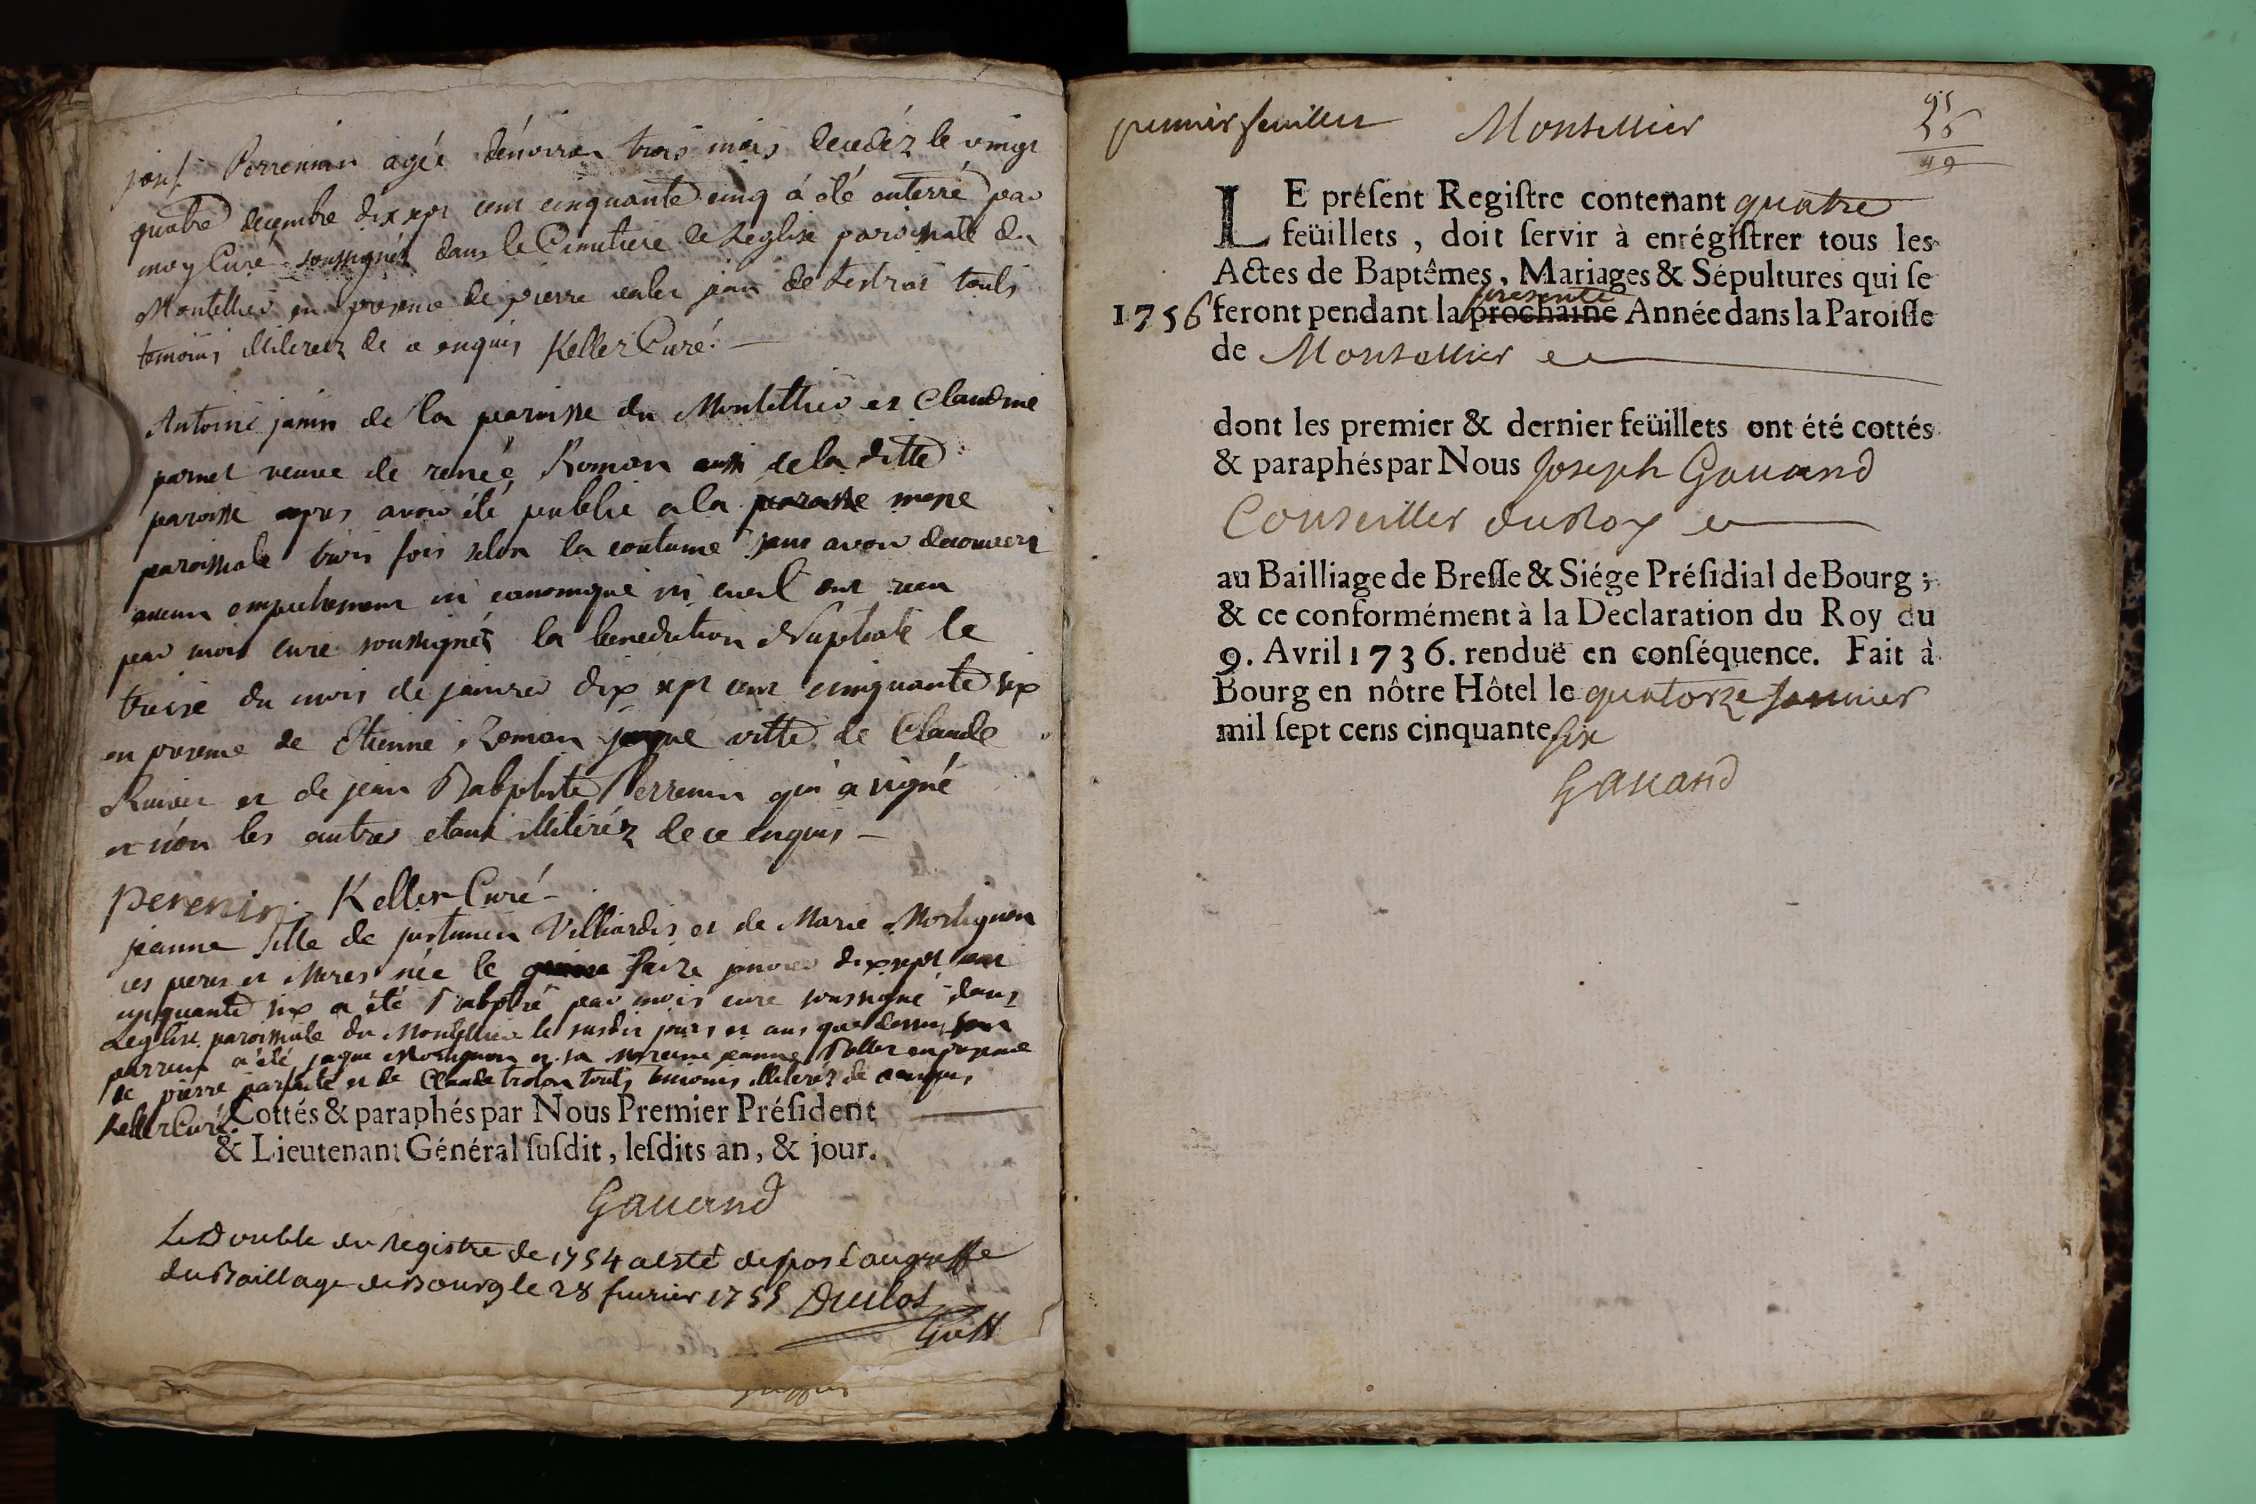 Perrenin agée denviron trois mois decedéz le vingt
quatre decembre dix sept cent cinquante cinq á été enterré par
moy Curé soussignéz dans le Cimetiere de Leglise paroissiale du
Montellier en presence de pierre jean de touts
temoins illiterez de ce enquis Keller Curé
Antoine janin de la paroisse du Montellier et Claudine
veuve de renée Roman aussi de la ditte
paroisse apres avoir été publié a la paroisse messe
paroissiale trois fois selon la coutume sans avoir decouvert
aucun empechement ni canonique ni civil ont recu
par mois curé soussignéz la benediction Nuptiale le
treize du mois de janvier dix sept cent cinquante six
en presence de Etienne Roman jaque vitte de Claude
et de jean Babptiste Perrenin qui a signé
et non les autres etant illiteréz de ce enquis
perenin Keller Curé
jeanne fille de Villiardis et de Marie Morlignon
ces peres et Meres née le seize janvier dix sept cent
cinquante six a été Babptisé par mois curé soussigné dans
Leglise paroissiale du Montellier le susdit jours et ans que dessus son
parrein a été jaque Morlignon et sa Mareine jeanne en presence
de pierre et de Claude touts temoins illiteréz de ce enquis
Keller Curé
Cottés & paraphés par Nous Premier Préſident
& Lieutenant Général ſuſdit, leſdits an, & jour.
Gauand
Le Double du Registre de 1754 a esté deposé au greffe
du Baillage de Bourg le 28 feurier 1755 Duclos
Greff
premier feuillet Montellier
25
49
LE préſent Regiſtre contenant quatre
feüillets, doit ſervir à enrégiſtrer tous les
Actes de Baptêmes, Mariages & Sépultures qui ſe
presente
1756 feront pendant la prochaine Année dans la Paroiſſe
de Montellier
dont les premier & dernier feüillets ont été cottés
& paraphés par Nous Joseph Gauand
Conseiller du Roy
au Bailliage de Breſſe & Siége Préſidial de Bourg;
& ce conformément à la Declaration du Roy du
9. Avril 1736. renduë en conſéquence. Fait à
Bourg en nôtre Hôtel le quatorze Januier
mil ſept cens cinquante six
Gauand